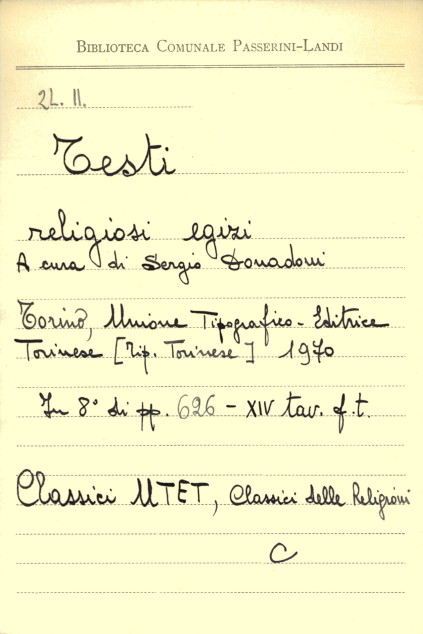 BIBLIOTECA COMUNALE PASSERINI-LANDI
2L. II.
Testi
religiosi egizi
A cura di Sergio Donadoni
Torino, Unione Tipografico-Editrice
Torinese [Tip. Torinese] 1970
In 8° di pp. 626 - XIV tav. f.t.
Classici UTET, Classici delle Religioni
C